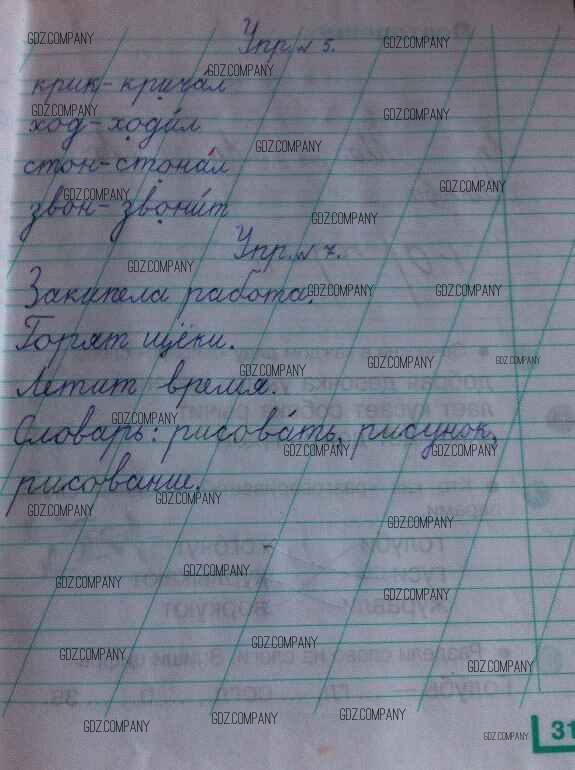 Упр. № 5.
крик - крича́л
ход - ходи́л
стон - стона́л
звон - звони́т
Упр. № 7.
Закипела работа.
Горят щёки.
Летит время.
Словарь: рисова́ть, рисунок,
рисование.
31
GDZ.COMPANY